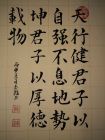 天行健君子以
自强不息地势
坤君子以厚德
载物